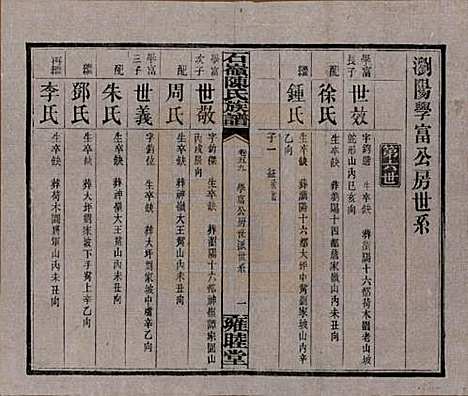 瀏陽學富公房世系
學富長子
世效
字鈞 生卒缺 葬瀏陽十六都荷木圍老山坡
蛇形山內巳亥向
配
徐氏
生卒缺 葬瀏陽十四都詹家 山內未丑向
繼
鍾氏
生卒缺 葬瀏陽十六都大坪中 劉家坡山內辛
乙向
子一
石嶺陳氏族譜
卷五九
學富公房世派世系
一
雍睦堂
學富次子
世敬
字鈞 生卒缺 葬瀏陽十六都神嶺譚家園山
丙戌辰向
配
周氏
生卒缺 葬神嶺大王 山內未丑向
學富三子
世義
字鈞 生卒缺 葬大坪劉家坡中 辛乙向
配
朱氏
生卒缺 葬神嶺大王 山內未丑向
繼
鄧氏
生卒缺 葬大坪劉家坡下子 上辛乙向
再繼
李氏
生卒缺 葬荷木圍將軍山內未丑向